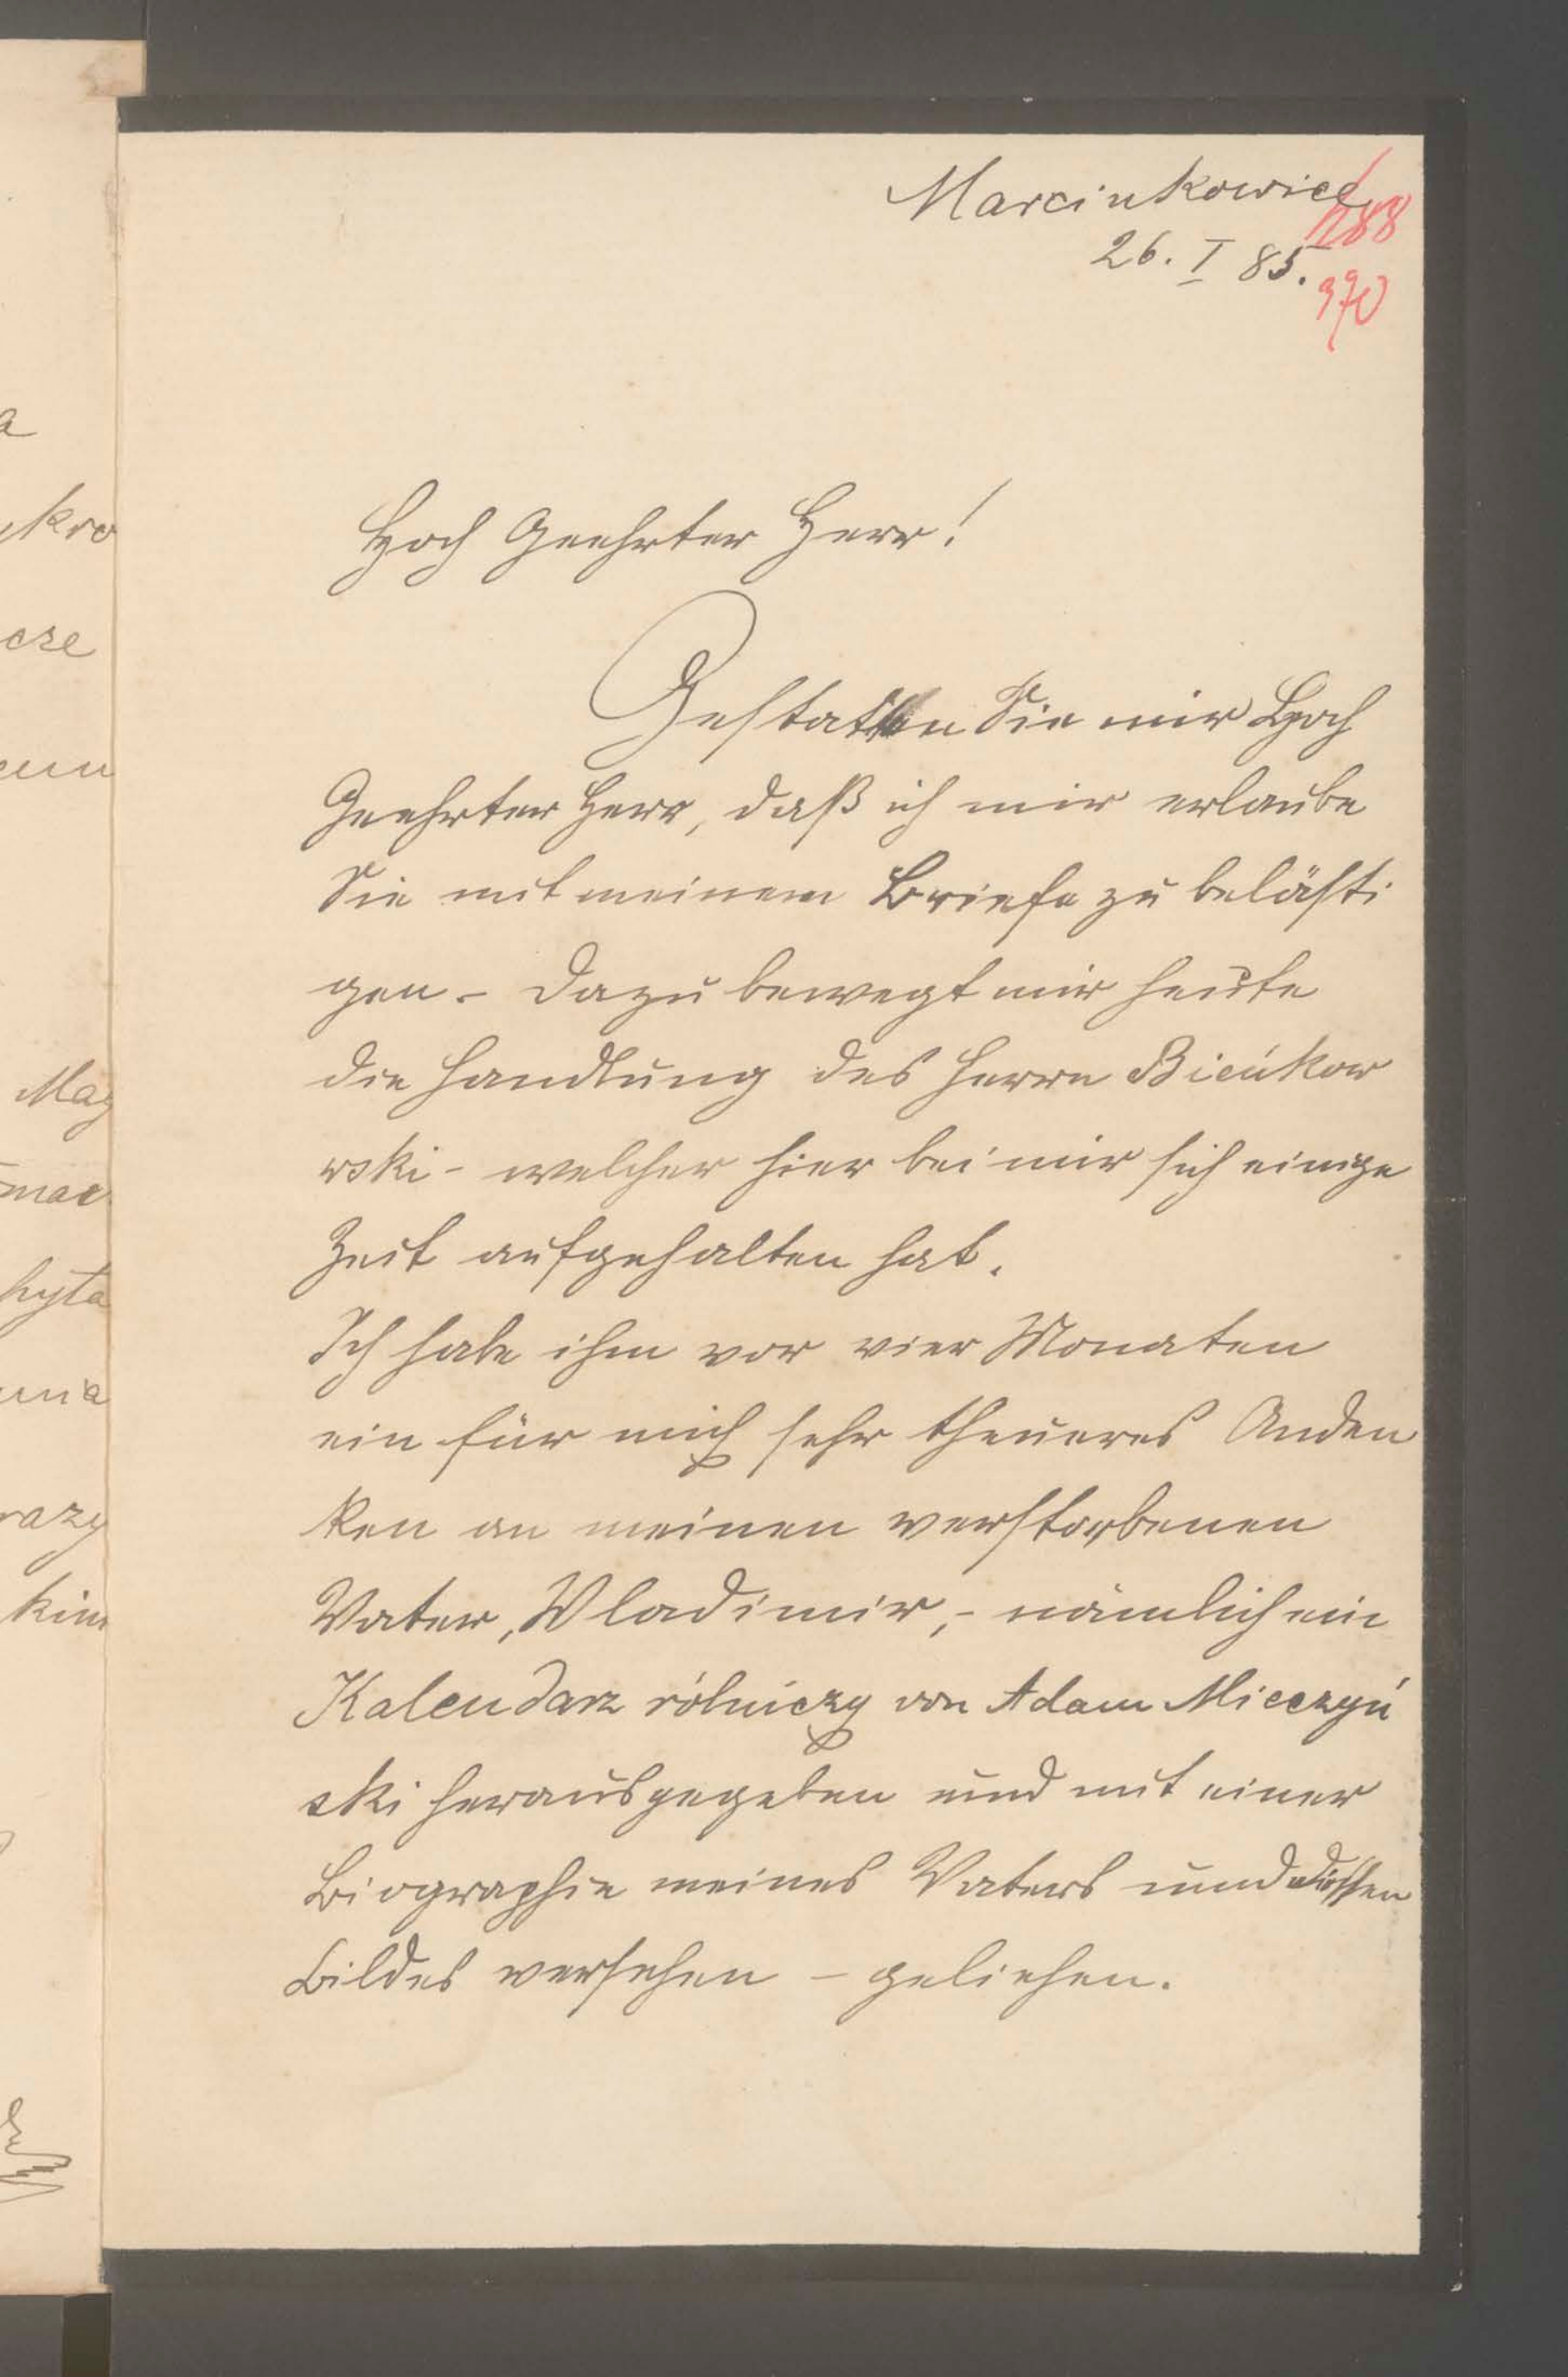 Marcinkowice
26. I 85.
288
370
Hoch Geehrter Herr!
Gestatten Sie mir Hoch
Geehrter Herr, daß ich mir erlaube
Sie mit meinem Briefe zu belästi
gen. – Dazu bewegt mir heute
die Handlung des Herrn Bieńkow
wski – welcher hier bei mir sich einige
Zeit aufgehalten hat.
Ich habe ihm vor vier Monaten
ein für mich sehr theueres Anden
ken an meinen verstorbenen
Vater, Wladimir, – nämlich ein
Kalendarz rólniczy von Adam Mieczyń
ski herausgegeben und mit einer
Biographie meines Vaters und dessen
Bildes versehen – geliehen.
a
kro
cze
Mag
mac
hyta
razy